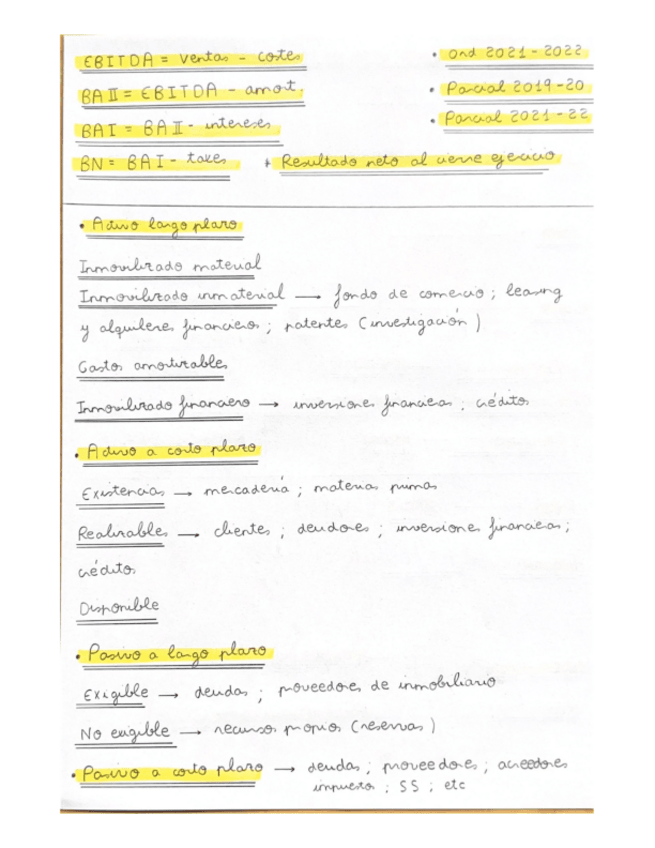 EBITDA = Ventas - costes
• Ord 2021-2022
BAII = EBITDA - amort.
• Parcial 2019-20
BAI = BAII - intereses
• Parcial 2021-22
BN = BAI - taxes
+ Resultado neto al cierre ejercicio
• Activo largo plazo
Inmovilizado material
Inmovilizado inmaterial → fondo de comercio ; leasing
y alquileres financieros ; patentes (investigación)
Gastos amortizables
Inmovilizado financiero → inversiones financieras ; créditos
• Activo a corto plazo
Existencias → mercadería ; materias primas
Realizables → clientes ; deudores ; inversiones financieras ;
créditos
Disponible
• Pasivo a largo plazo
Exigible → deudas ; proveedores de inmobiliario
No exigible → recursos propios (reservas)
• Pasivo a corto plazo → deudas ; proveedores ; acreedores
impuestos ; SS ; etc